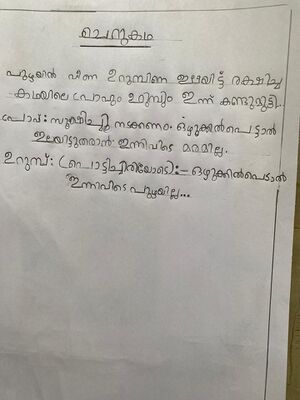 ചെറുകഥ
പുഴയിൽ വീണ ഉറുമ്പിനെ ഇലയിട്ട് രക്ഷിച്ച
കഥയിലെ പ്രാവും ഉറുമ്പും ഇന്ന് കണ്ടുമുട്ടി.
പ്രാവ്: സൂക്ഷിച്ചു നടക്കണം. ഒഴുക്കിൽപെട്ടാൽ
ഇലയിട്ടുതരാൻ ഇന്നിവിടെ മരമില്ല.
ഉറുമ്പ്: (പൊട്ടിച്ചിരിയോടെ):- ഒഴുക്കിൽപെടാൻ
ഇന്നിവിടെ പുഴയില്ല...